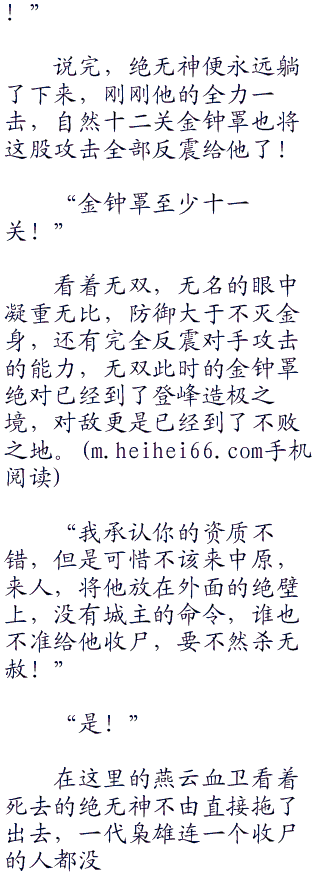 ！”
说完，绝无神便永远躺
了下来，刚刚他的全力一
击，自然十二关金钟罩也将
这股攻击全部反震给他了！
“金钟罩至少十一
关！”
看着无双，无名的眼中
凝重无比，防御大于不灭金
身，还有完全反震对手攻击
的能力，无双此时的金钟罩
绝对已经到了登峰造极之
境，对敌更是已经到了不败
之地。(m.heihei66.com手机
阅读)
“我承认你的资质不
错，但是可惜不该来中原，
来人，将他放在外面的绝壁
上，没有城主的命令，谁也
不准给他收尸，要不然杀无
赦！”
“是！”
在这里的燕云血卫看着
死去的绝无神不由直接拖了
出去，一代枭雄连一个收尸
的人都没